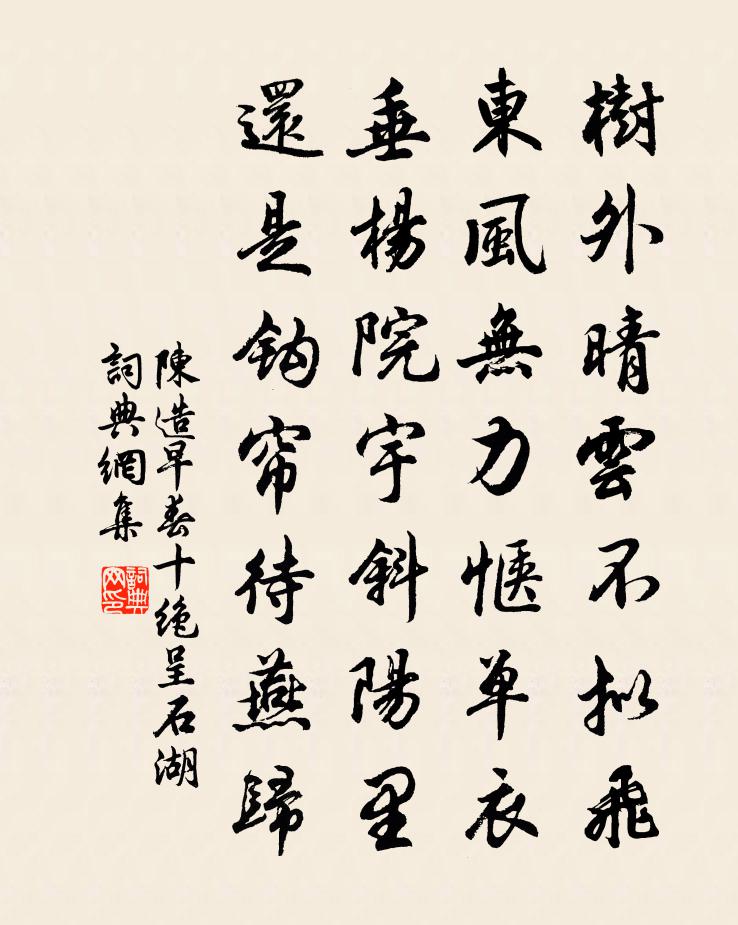 樹外晴雲不拟飛
東風無力愜单衣
垂楊院宇斜陽里
還是鈎帘待燕歸
陳造早春十绝呈石湖
詞典網集
詞典网印